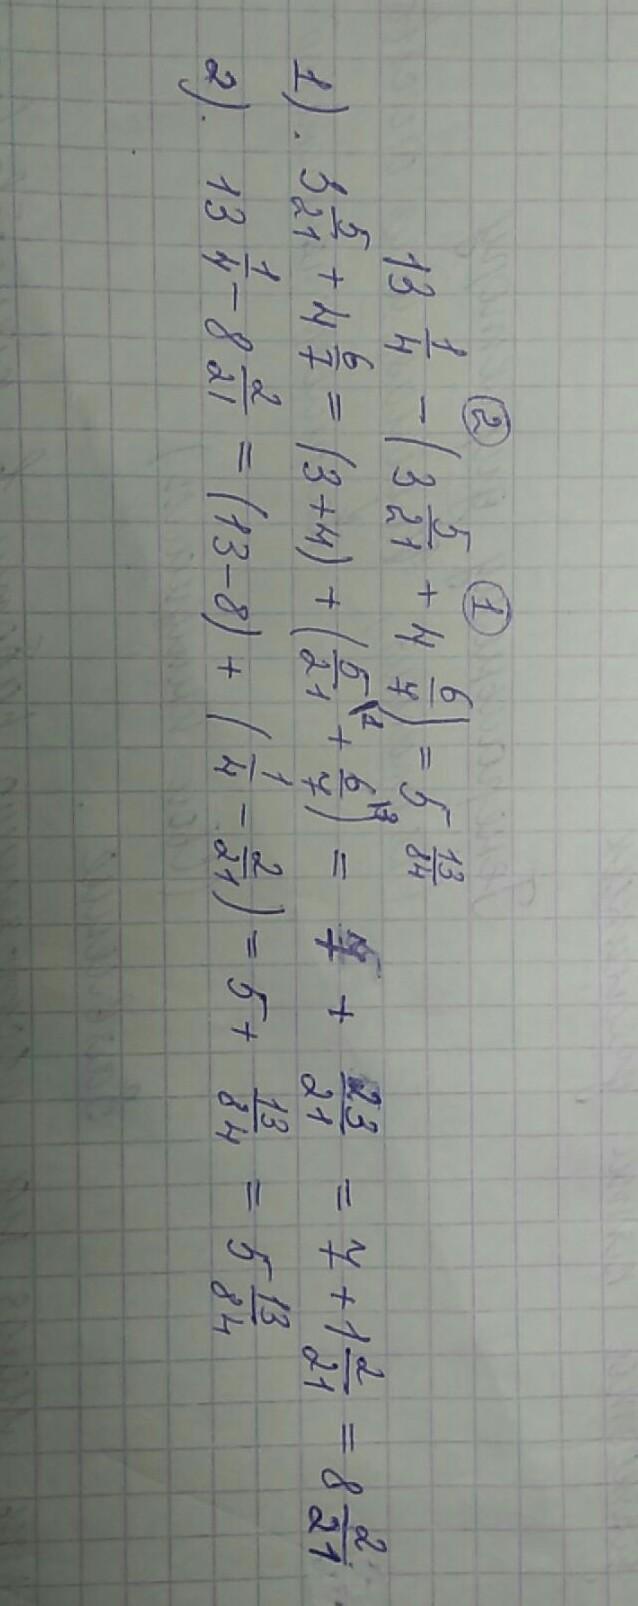 ② ①
13 1/4 - (3 5/21 + 4 6/7) = 5 13/84
1). 3 5/21 + 4 6/7 = (3+4) + (5/21 \1 + 6/7 \3) = 7 + 23/21 = 7 + 1 2/21 = 8 2/21
2). 13 1/4 - 8 2/21 = (13-8) + (1/4 - 2/21) = 5 + 13/84 = 5 13/84